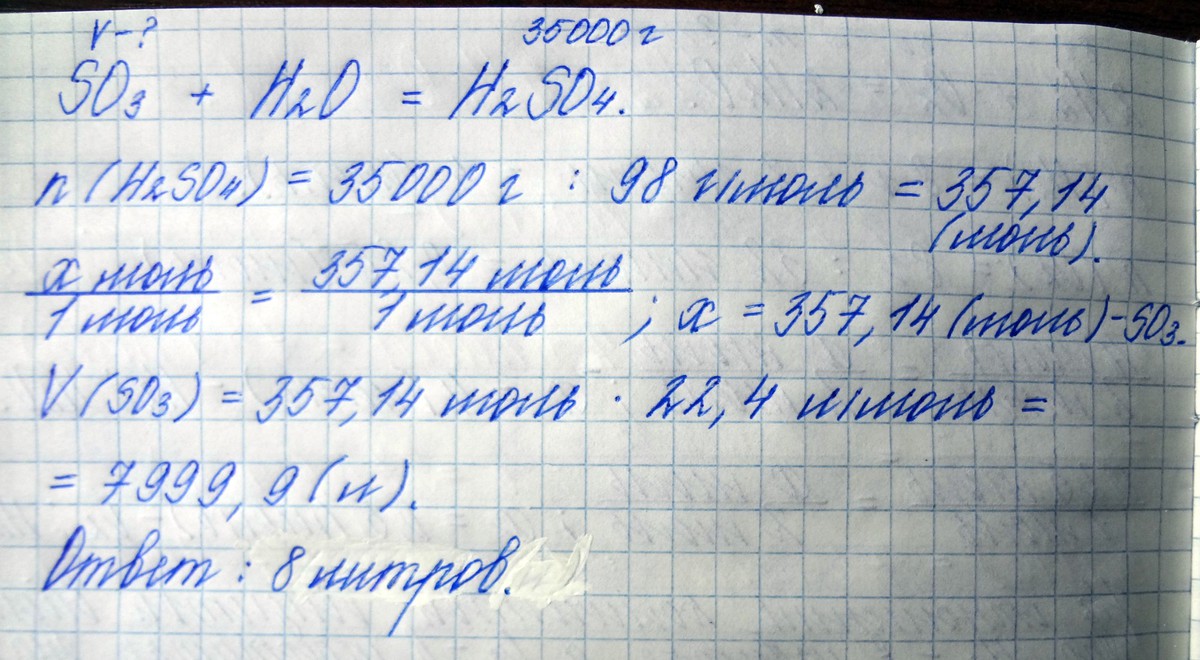 V-? 35000 г
SO3 + H2O = H2SO4.
n (H2SO4) = 35000 г : 98 г/моль = 357,14
(моль).
x моль / 1 моль = 357,14 моль / 1 моль ; x = 357,14 (моль) - SO3.
V (SO3) = 357,14 моль · 22,4 л/моль =
= 7999,9 (л).
Ответ: 8 литров.